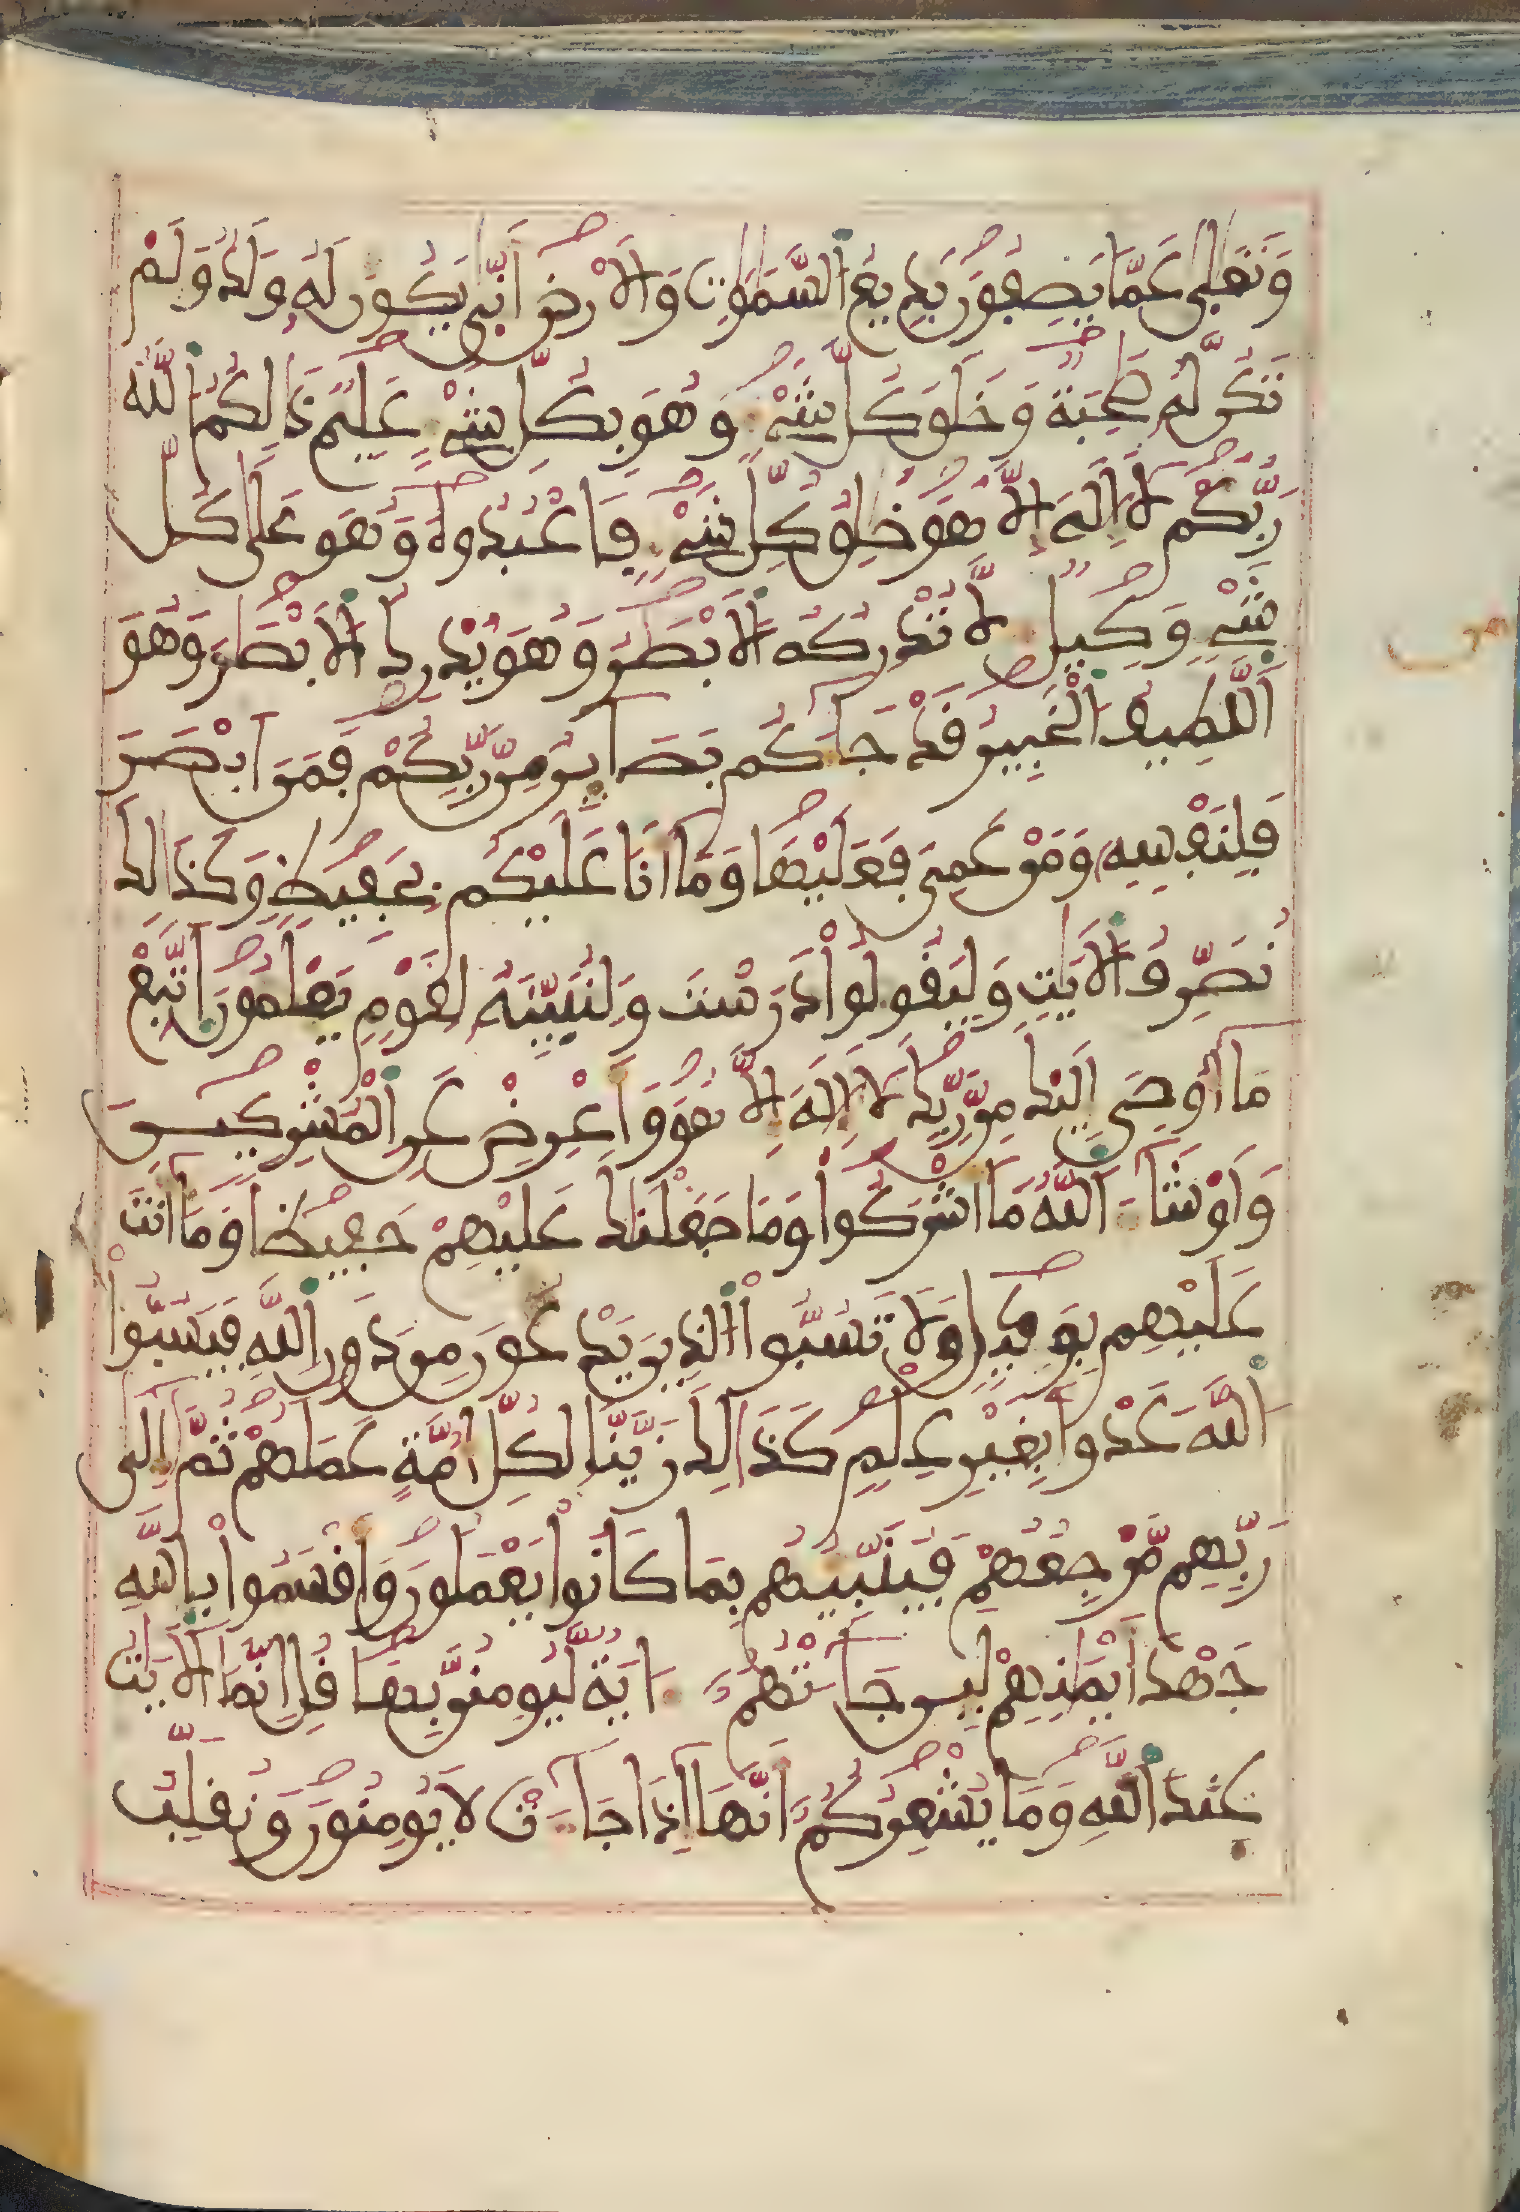 وَتَعَٰلِىٰ عَمَّا يَصِفُونَ بَدِيعُ اُ۬لسَّمَٰوَٰتِ وَالَارْضِ أَنّ۪ىٰ يَكُونُ لَهُۥ وَلَدٞ وَلَمْ
تَكُن لَّهُۥ صَٰحِبَةٞ وَخَلَقَ كُلَّ شَےْءٖ وَهُوَ بِكُلِّ شَےْءٍ عَلِيمٞ ذَٰلِكُمُ اُ۬للَّهُ
رَبُّكُمْ لَا إِلَٰهَ إِلَّا هُوَ خَٰلِقُ كُلِّ شَےْءٖ فَاعْبُدُوهُ وَهُوَ عَلَىٰ كُلِّ
شَےْءٖ وَكِيلٞ لَّا تُدْرِكُهُ اُ۬لَابْصَٰرُ وَهُوَ يُدْرِكُ اُ۬لَابْصَٰرَ وَهُوَ
اَ۬للَّطِيفُ اُ۬لْخَبِيرُ قَدْ جَآءَكُم بَصَآئِرُ مِن رَّبِّكُمْ فَمَنَ اَبْصَرَ
فَلِنَفْسِهِۦ وَمَنْ عَمِىَ فَعَلَيْهَا وَمَا أَنَا عَلَيْكُم بِحَفِيظٖ وَكَذَٰلِكَ
نُصَرِّفُ اُ۬لَايَٰتِ وَلِيَقُولُواْ دَرَسْتَ وَلِنُبَيِّنَهُۥ لِقَوْمٖ يَعْلَمُونَ اَ۪تَّبِعْ
مَا أُوحِىَ إِلَيْكَ مِن رَّبِّكَ لَا إِلَٰهَ إِلَّا هُوَ وَأَعْرِضْ عَنِ اِ۬لْمُشْرِكِينَ
وَلَوْ شَآءَ اَ۬للَّهُ مَا أَشْرَكُواْ وَمَا جَعَلْنَٰكَ عَلَيْهِمْ حَفِيظاٗ وَمَا أَنتَ
عَلَيْهِم بِوَكِيلٖ وَلَا تَسُبُّواْ اُ۬لذِينَ يَدْعُونَ مِن دُونِ اِ۬للَّهِ فَيَسُبُّواْ
اُ۬للَّهَ عَدْواَۢ بِغَيْرِ عِلْمٖ كَذَٰلِكَ زَيَّنَّا لِكُلِّ أُمَّةٍ عَمَلَهُمْ ثُمَّ إِلَىٰ
رَبِّهِم مَّرْجِعُهُمْ فَيُنَبِّئُهُم بِمَا كَانُواْ يَعْمَلُونَ وَأَقْسَمُواْ بِاللَّهِ
جَهْدَ أَيْمَٰنِهِمْ لَئِن جَآءَتْهُمُۥ ءَايَةٞ لَّيُومِنُنَّ بِهَا قُلِ اِنَّمَا اَ۬لَايَٰتُ
عِندَ اَ۬للَّهِ وَمَا يُشْعِرُكُمُۥ أَنَّهَا إِذَا جَآءَتْ لَا يُومِنُونَ وَنُقَلِّبُ